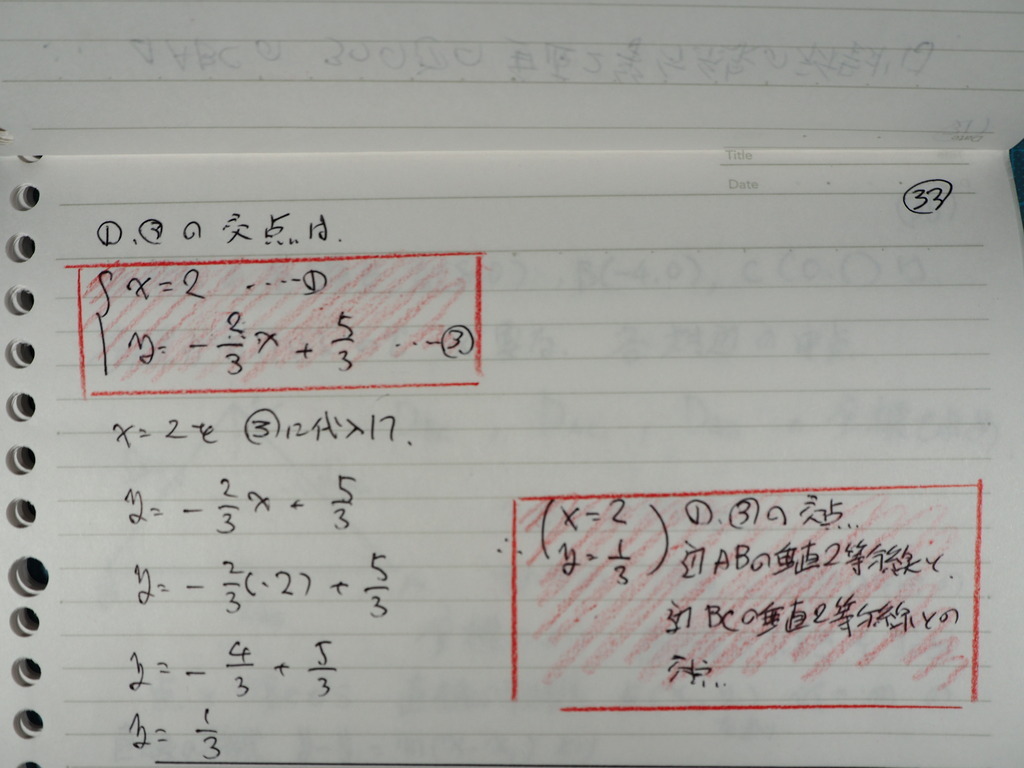 Title
Date
33
①、③の交点は、
x=2 ····①
y= -2/3 x + 5/3 ····③
x=2を③に代入すれば、
y= -2/3 x + 5/3
y= -2/3(·2) + 5/3
y= -4/3 + 5/3
y= 1/3
∴ (x=2 y=1/3) ①、③の交点
辺ABの垂直2等分線と、
辺BCの垂直2等分線との
交点